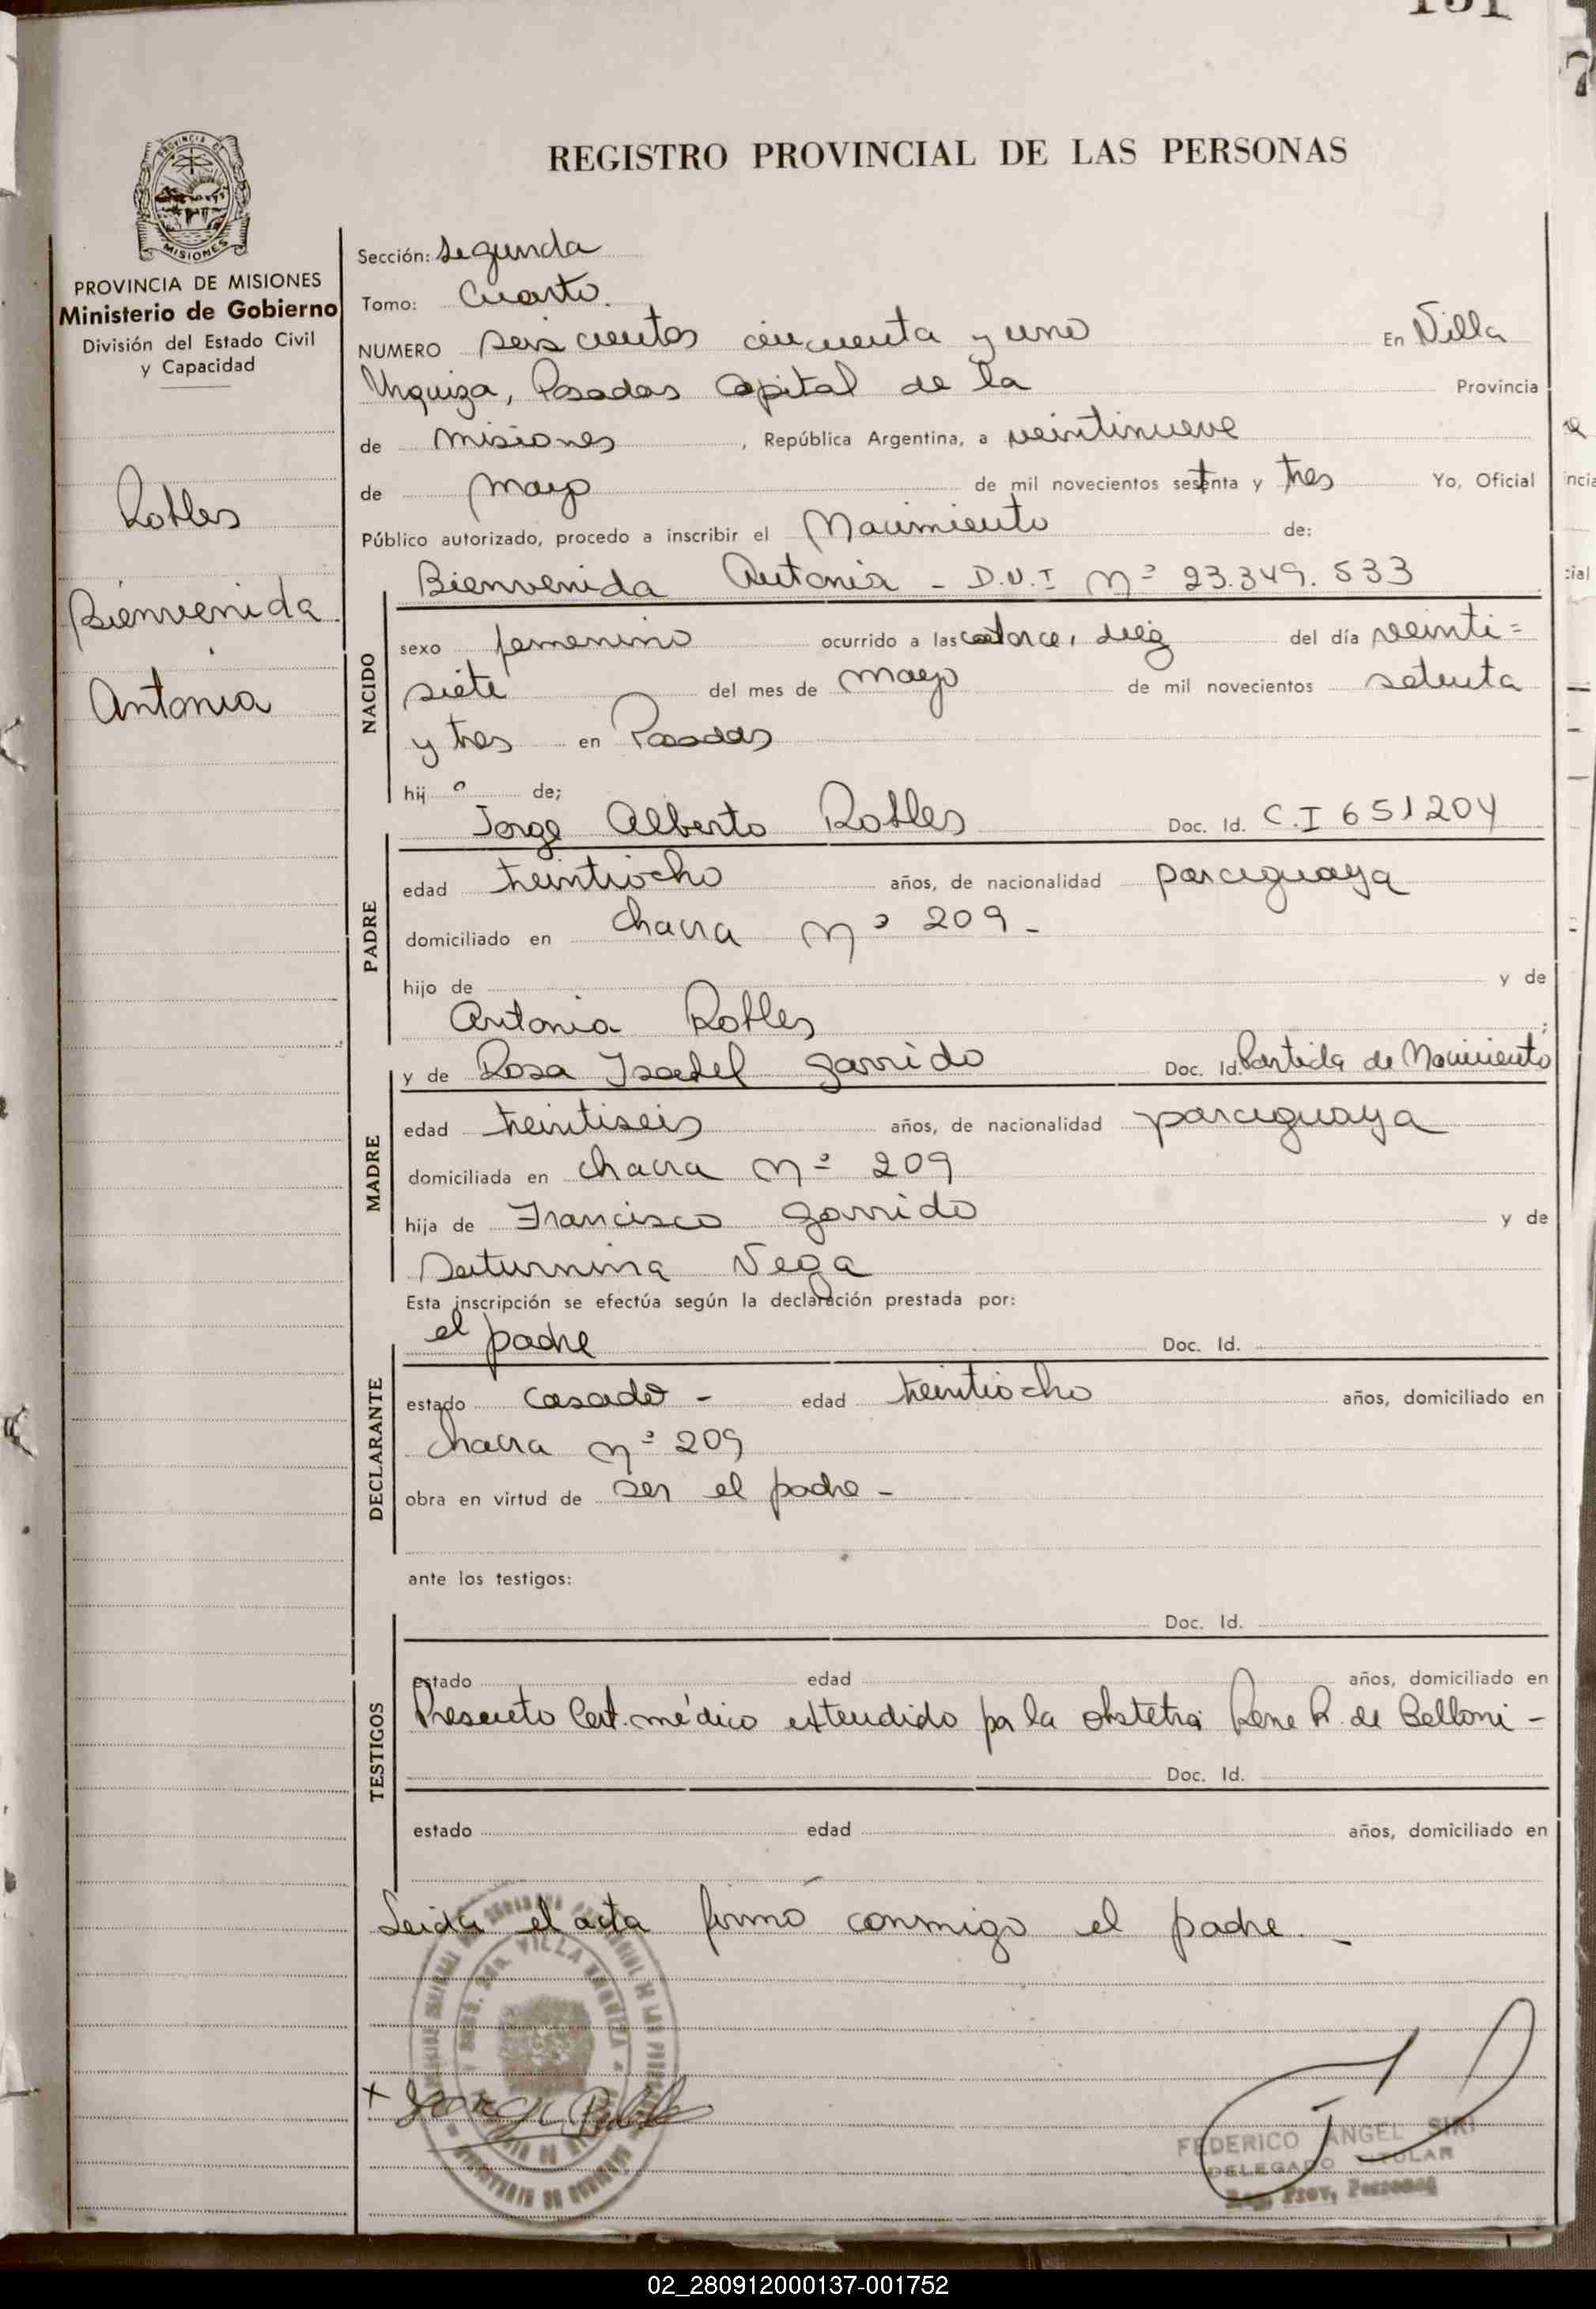 151
7
REGISTRO PROVINCIAL DE LAS PERSONAS
PROVINCIA DE MISIONES
Ministerio de Gobierno
División del Estado Civil
y Capacidad
Robles
Bienvenida
Antonia
Sección: Segunda
Tomo: Cuarto.
NUMERO seis cientos cincuenta y uno En Villa
Urquiza, Posadas Capital de la Provincia
de misiones, República Argentina, a veintinueve
de mayo de mil novecientos setenta y tres Yo, Oficial
Público autorizado, procedo a inscribir el Nacimiento de:
Bienvenida Antonia - D.N.I Nº 23.349.533
NACIDO
sexo femenino ocurrido a las catorce, diez del día veinti=
siete del mes de mayo de mil novecientos setenta
y tres en Posadas
hij o de;
Jorge Alberto Robles Doc. Id. C.I 651204
PADRE
edad treintiocho años, de nacionalidad paraguaya
domiciliado en chacra Nº 209-
hijo de y de
Antonia Robles ;
y de Rosa Isabel Garrido Doc. Id. Partida de Nacimiento
MADRE
edad treintiseis años, de nacionalidad paraguaya
domiciliada en chacra Nº 209
hija de Francisco Garrido y de
Saturnina Vega
Esta inscripción se efectúa según la declaración prestada por:
el padre Doc. Id.
DECLARANTE
estado casado - edad treintiocho años, domiciliado en
chacra nº 209
obra en virtud de ser el padre -
ante los testigos:
Doc. Id.
TESTIGOS
estado edad años, domiciliado en
Presento Cert. médico extendido por la obstetra Rene R. de Belloni -
Doc. Id.
estado edad años, domiciliado en
Leida el acta firmó conmigo el padre. -
VILLA URQUIZA
FEDERICO ANGEL SIRI
DELEGADO TITULAR
Reg. Prov. Personas
02_280912000137-001752